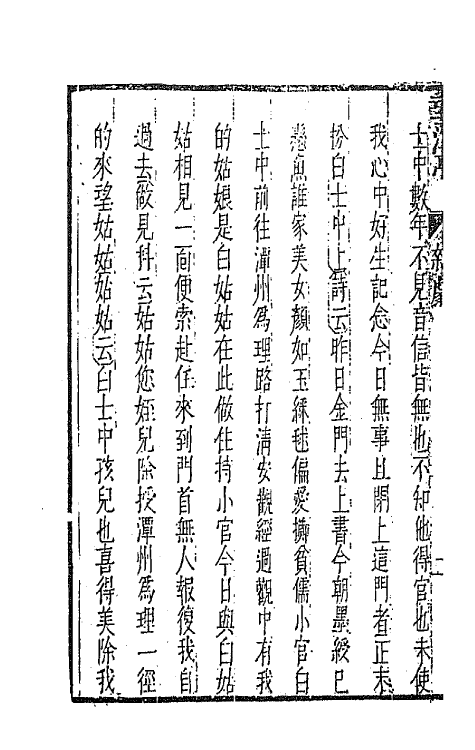 士中數年不見音信皆無也不知他得官也未使
我心中好生記念今日無事且閉上這門者正末
扮白士中上詩云昨日金門去上書今朝墨綬已
懸魚誰家美女顏如玉綵毬偏愛擲貧儒小官白
士中前往潭州為理路打清安觀經過觀中有我
的姑娘是白姑姑在此做住持小官今日與白姑
姑相見一面便索赴任來到門首無人報復我自
過去做見科云姑姑您姪兒除授潭州為理一徑
的來望姑姑姑姑云白士中孩兒也喜得美除我